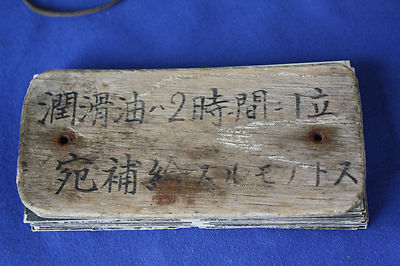 潤滑油ハ2時間ニ1立
宛補給スルモノトス